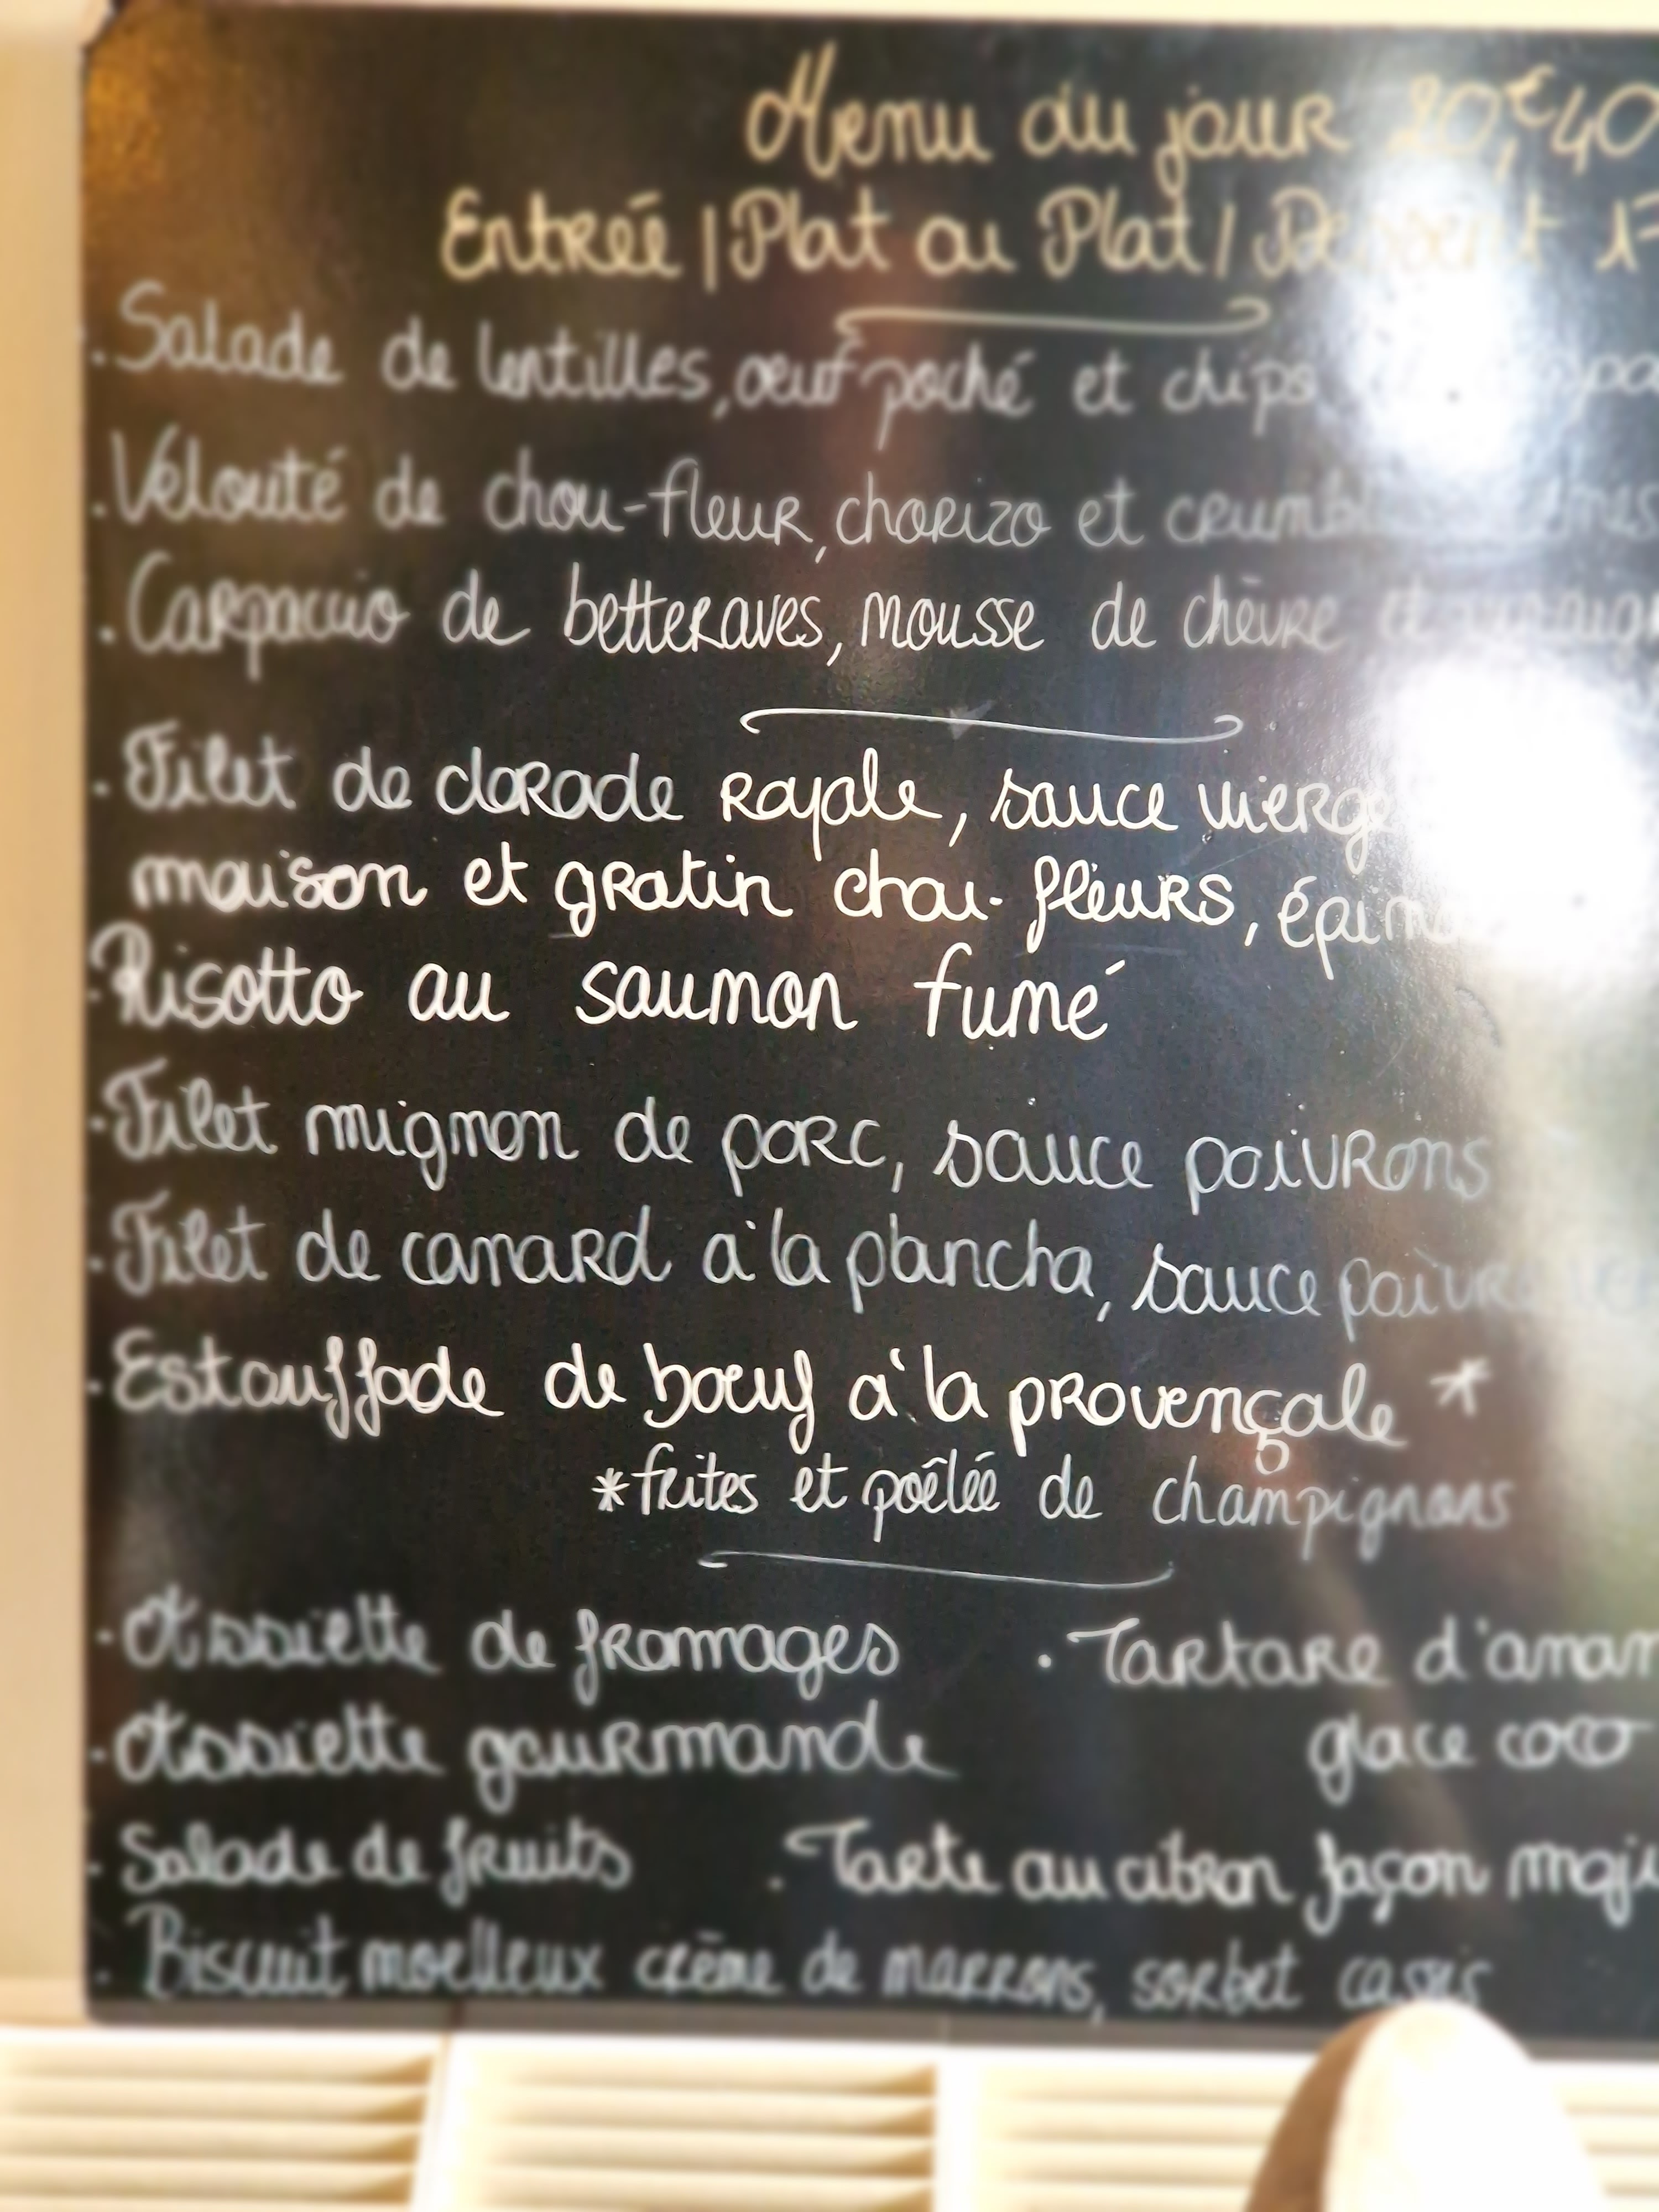 Menu du jour 20,€40
Entrée / Plat ou Plat / Dessert 17
. Salade de lentilles, œuf poché et chips
. Velouté de chou-fleur, chorizo et
. Carpaccio de betteraves, mousse de chèvre et
. Filet de dorade royale, sauce vierge
maison et gratin chou-fleurs,
. Risotto au saumon fumé
. Filet mignon de porc, sauce poivrons
. Filet de canard à la plancha, sauce
. Estouffade de bœuf à la provençale *
* frites et poêlée de champignons
. Assiette de fromages . Tartare
. Assiette gourmande glace coco
. Salade de fruits . Tarte au citron façon
. Biscuit moelleux crème de marrons, sorbet cassis